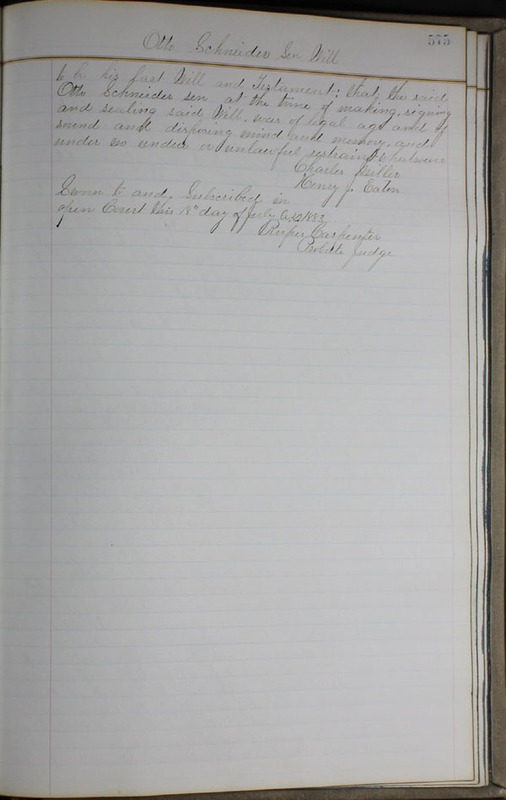 575
Otto Schneider Sen Will
to be his last Will and Testament; that the said
Otto Schneider sen at the time of making, signing
and sealing said Will, was of legal age and of
sound and disposing mind and memory, and
under no undue or unlawful restraint whatsoever
Charles Miller
Henry J. Eaton
Sworn to and Subscribed in
open Court this 18th day of July A.D. 1883
Carpenter
Probate Judge